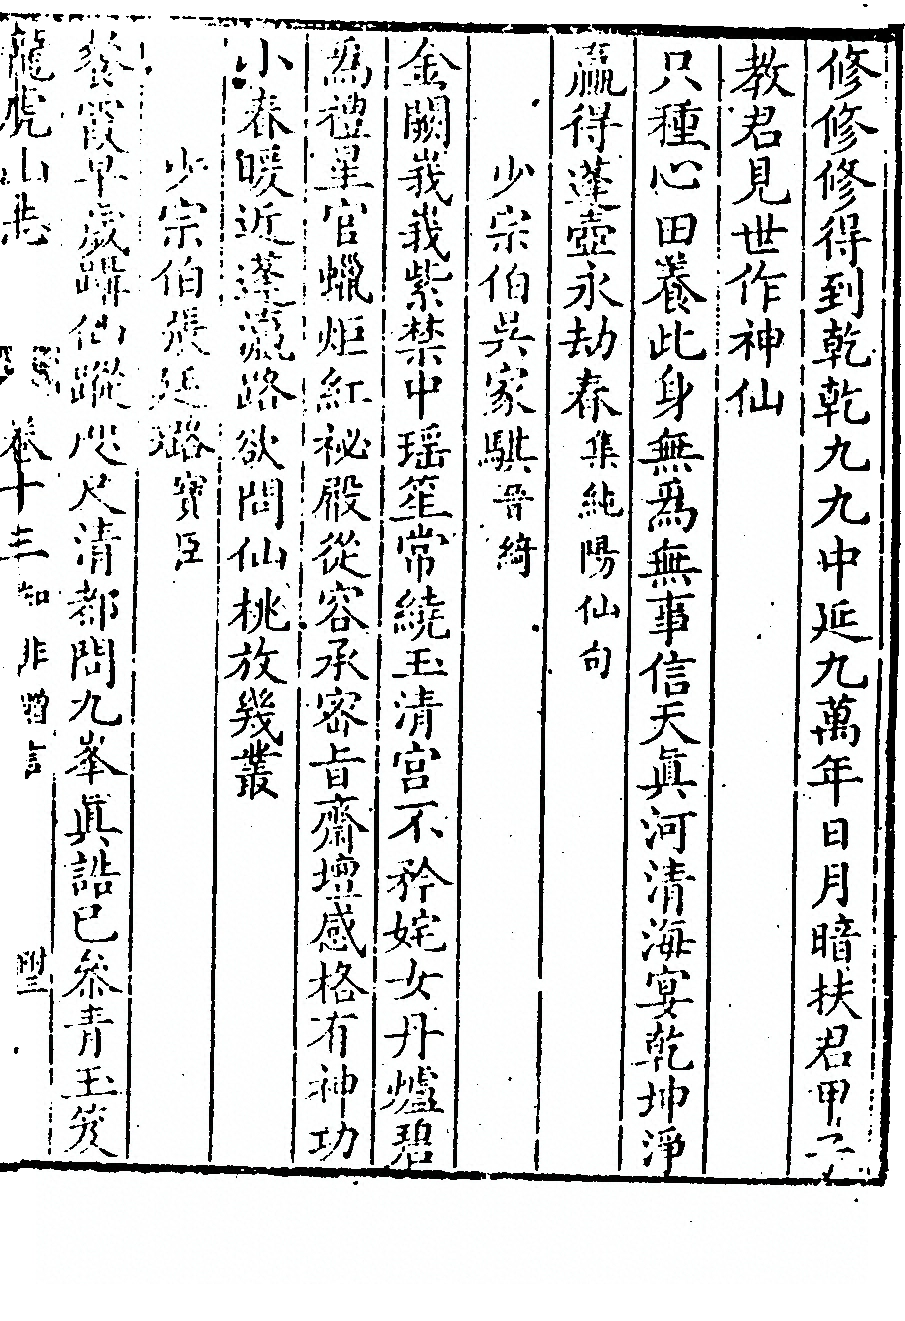 修修修得到乾乾九九中延九萬年日月暗扶君甲子
教君見世作神仙
只種心田養此身無爲無事信天眞河清海宴乾坤淨
贏得蓬壺永劫春集純陽仙句
少宗伯吳家騏晉綺
金闕峩峩紫禁中瑶笙常繞玉清宫不矜姹女丹爐碧
爲禮星官蠟炬紅祕殿從容承密旨齋壇感格有神功
小春暖近蓬瀛路欲問仙桃放幾叢
少宗伯張廷璐寶臣
餐霞早歲躡仙蹤咫尺清都問九峯眞誥已叅青玉笈
龍虎山志 卷十三